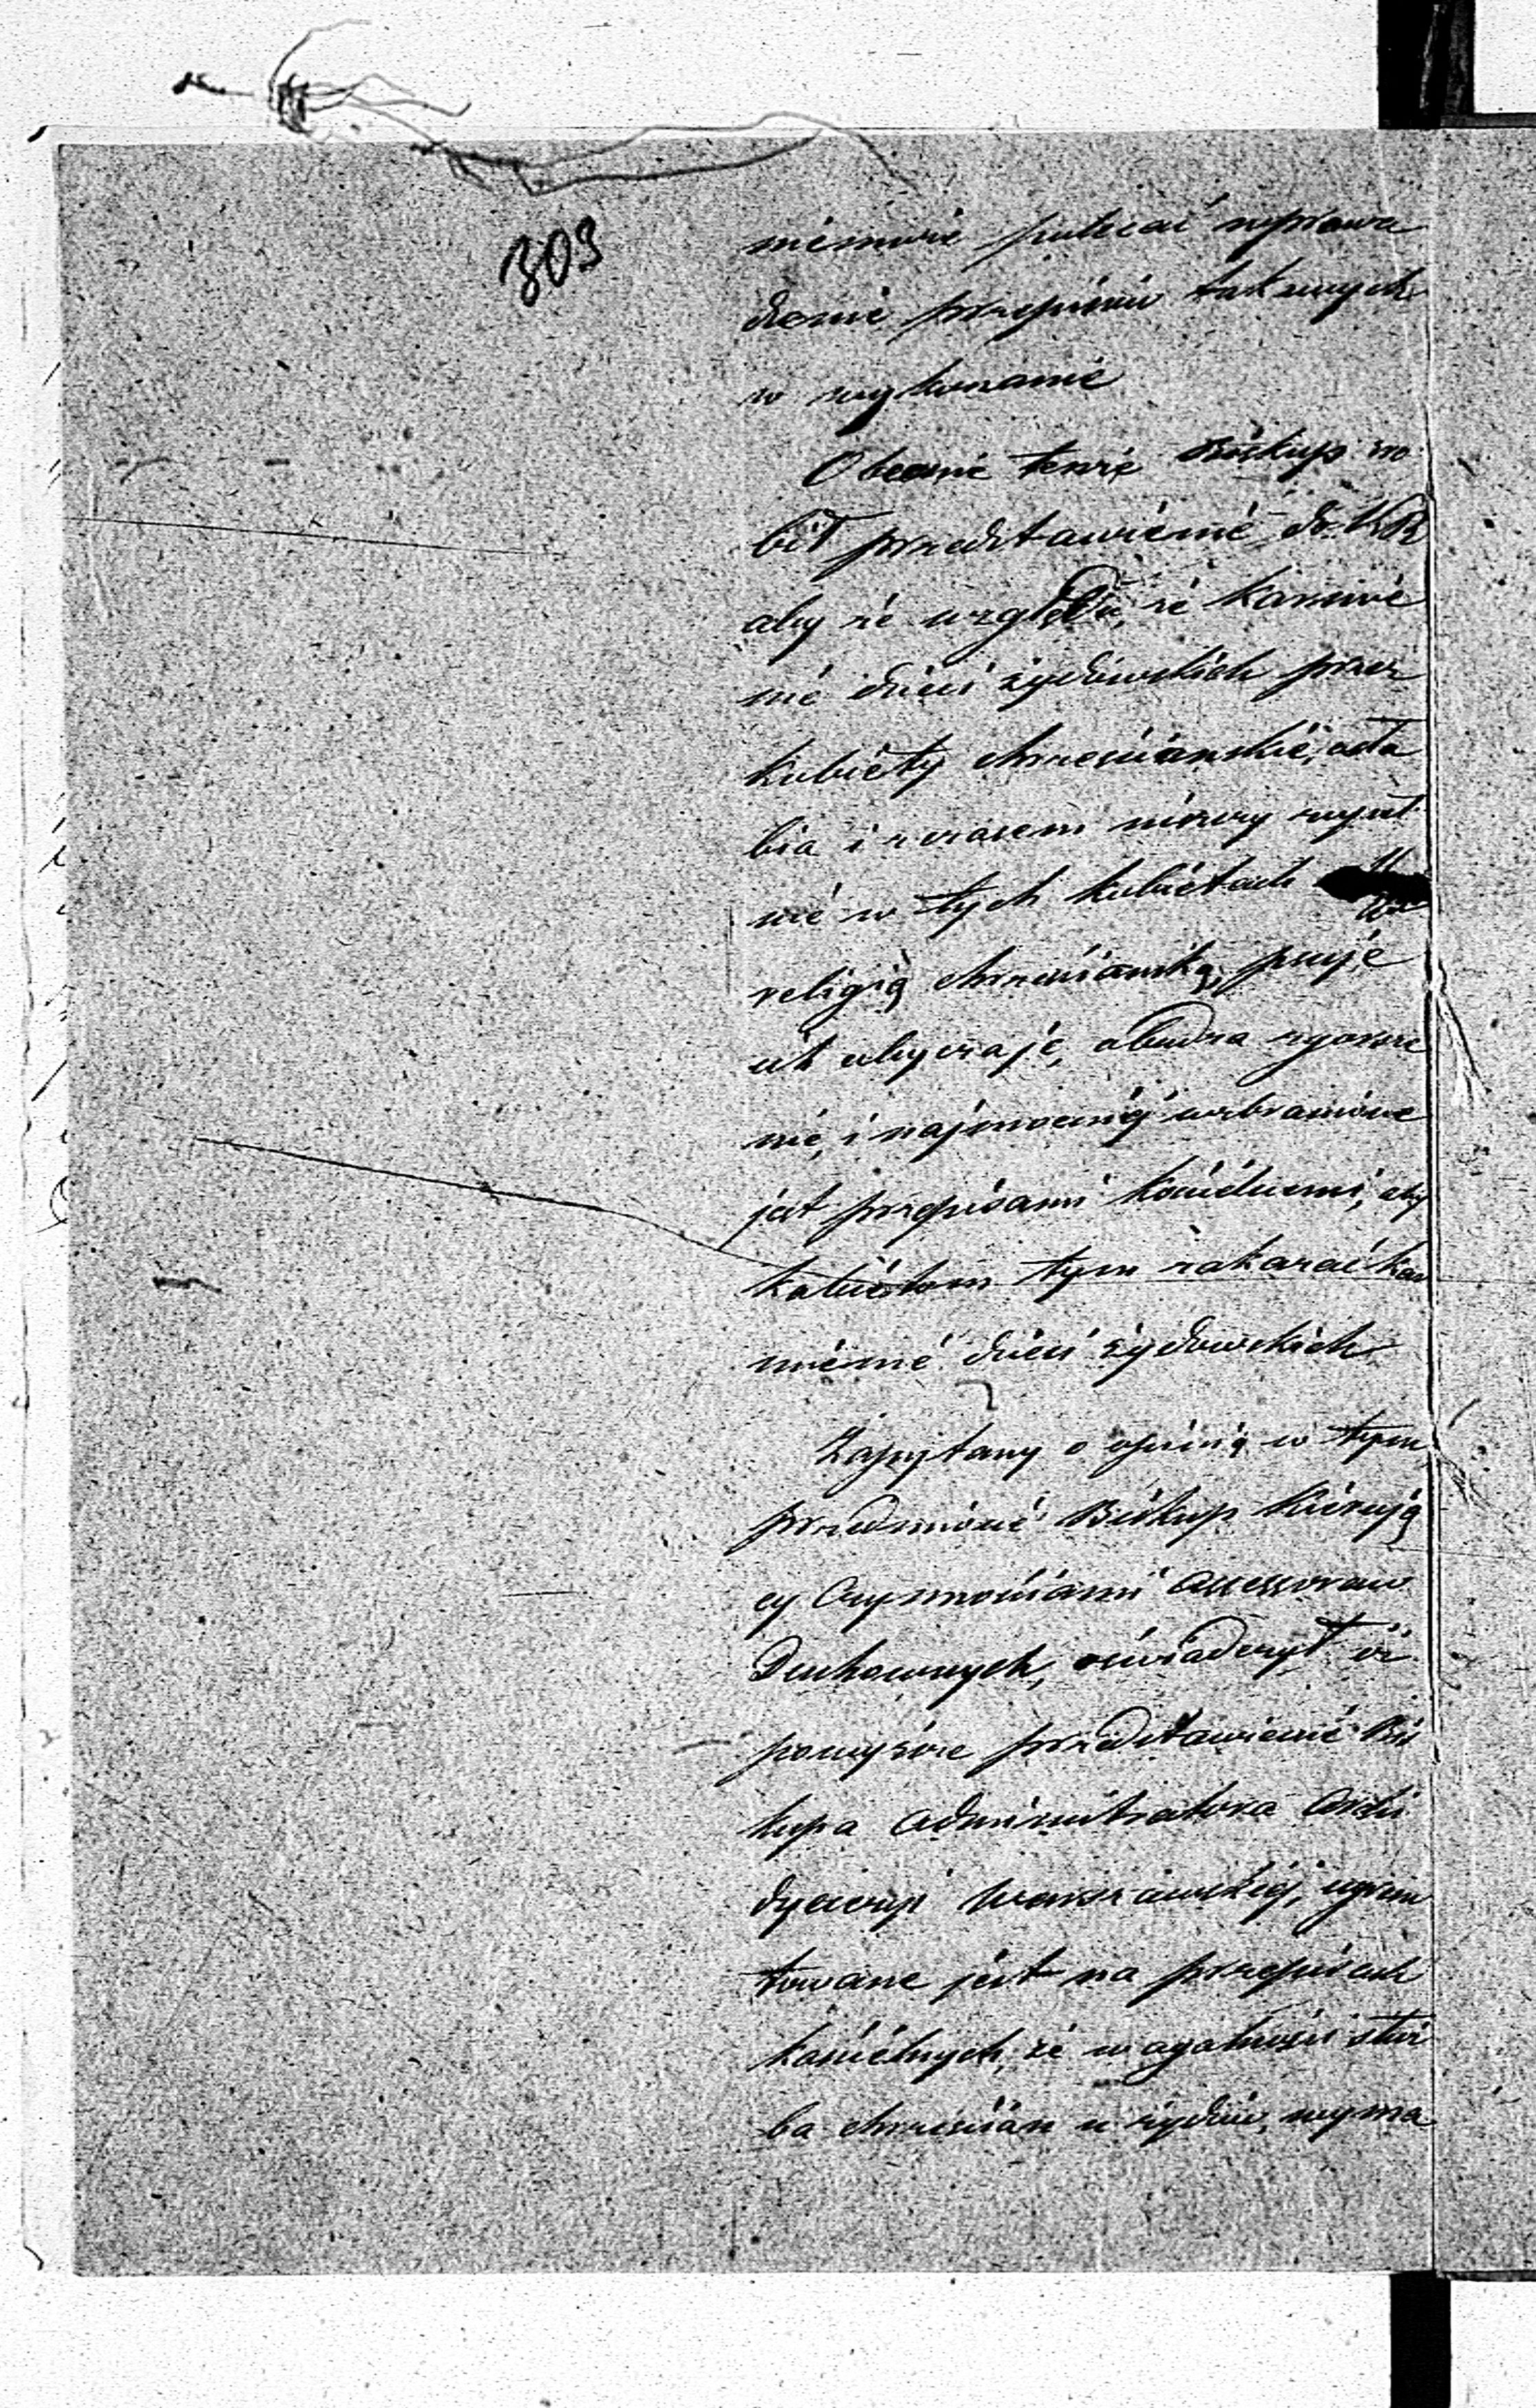 303
niemoże polecać wprowa
dzenie przepisów takowych
w wykonanie
Obecnie tenże Biskup zro
bił przedstawienie do K.R.
aby ze względu, że karmie
nie dzieci żydowskich przez
kobiety chrześciańskie, osła
bia i z czasem niszczy zupeł
nie w tych kobietach
religią chrześciańską, psuje
ich obyczaje, obudza zgorsze
nie, i najmocniej wzbronione
jest przepisami kościelnemi, aby
kobietom tym zakazać kar
mienie dzieci żydowskich
Zapytany o opinią w tym
przedmiocie Biskup kierują
cy Czynnościami Assessorów
Duchownych, oświadczył iż
powyższe przedstawienie Bis
kupa Administratora Archi
dyecezyi Warszawskiej, ugrun
towane jest na przepisach
kościelnych, że w ogólności służ
ba chrześcian u żydów, wyma